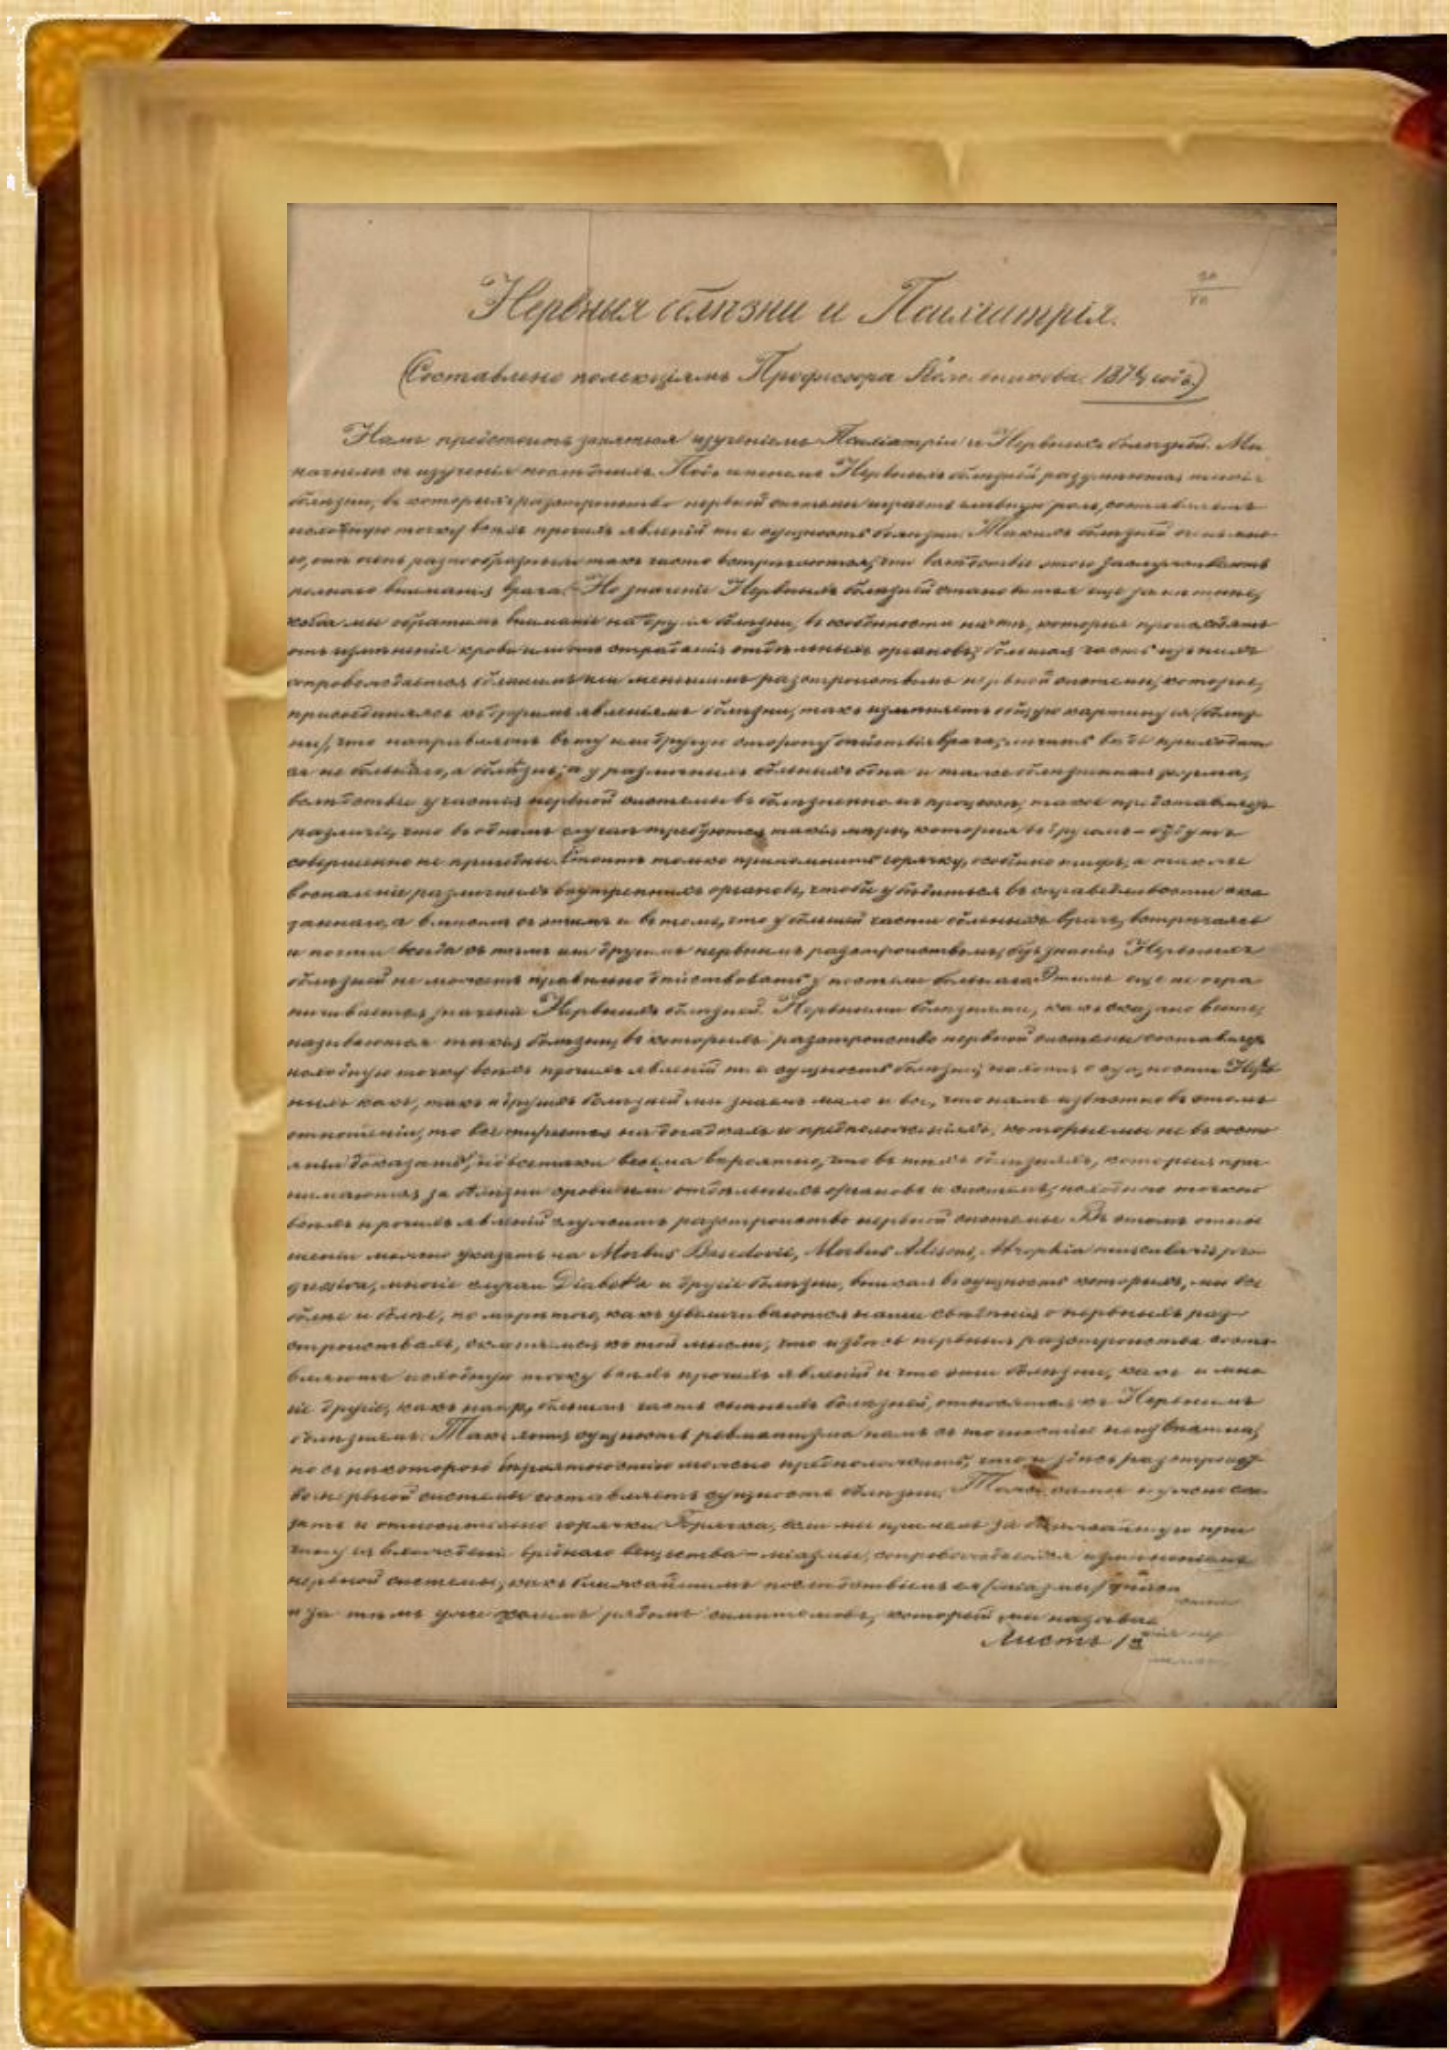 Нервныя болѣзни и Психіатрія.
(Составлено по лекціямъ Профессора
Намъ предстоитъ заняться изученіемъ Психіатріи и Нервныхъ болѣзней. Мы
начнемъ съ изученія послѣднихъ. Подъ именемъ Нервныхъ болѣзней разумѣются такія
болѣзни, въ которыхъ разстройство нервной системы играетъ главную роль, составляетъ
исходную точку всѣхъ прочихъ явленій т. е сущность болѣзни. Такихъ болѣзней очень мно-
го, онѣ очень разнообразны и такъ часто встрѣчаются, что вслѣдствіе этого заслуживаютъ
полнаго вниманія врача. Но значеніе Нервныхъ болѣзней становится еще
когда мы обратимъ вниманіе на другія болѣзни, въ особенности на тѣ, которыя происходятъ
отъ измѣненія крови или отъ страданія отдѣльныхъ органовъ; большая часть изъ нихъ
сопровождается большимъ или меньшимъ разстройствомъ нервной системы, которое,
присоединяясь къ другимъ явленіямъ болѣзни, такъ измѣняетъ общую картину ея (болѣз-
ни), что направляетъ въ ту или другую сторону дѣйствія врача; лечить вѣдь приходит
ся не больнаго, а болѣзнь; а у различныхъ больныхъ одна и таже болѣзненная форма,
вслѣдствіе участія нервной системы въ болѣзненномъ процессѣ, такое представляетъ
различіе, что въ одномъ случаѣ требуются такія мѣры, которыя въ другомъ - будутъ
совершенно не пригодны. Стоитъ только припомнить горячку, особенно тифъ, а также
воспаленіе различныхъ внутреннихъ органовъ, чтобы убѣдиться въ справедливости ска
заннаго, а вмѣстѣ съ этимъ и въ томъ, что у большей части больныхъ врачъ, встрѣчаясь
и почти всегда съ тѣмъ или другимъ нервнымъ разстройствомъ, безъ знанія Нервныхъ
болѣзней не можетъ правильно дѣйствовать у постели больнаго. Этимъ еще не огра
ничивается значеніе Нервныхъ болѣзней. Нервными болѣзнями, какъ сказано выше,
называются такія болѣзни, въ которыхъ разстройство нервной системы составляетъ
исходную точку всѣхъ прочихъ явленій т. е сущность болѣзни; но хотя о сущности Нерв
ныхъ какъ, такъ и другихъ болѣзней мы знаемъ мало и все, что намъ извѣстно въ этомъ
отношеніи, то все опирается на догадкахъ и предположеніяхъ, которыя мы не въ состо
яніи доказать, но всетаки весьма вѣроятно, что въ тѣхъ болѣзняхъ, которыя при-
нимаются за болѣзни крови или отдѣльныхъ органовъ и системъ, исходною точкою
всѣхъ прочихъ явленій служитъ разстройство нервной системы. Въ этомъ отно
шеніи можно указать на Morbus Basedovii, Morbus Adisoni, Atrophia muscularis pro
gressiva, многіе случаи Diabet'a и другіе болѣзни, въ сущность которыхъ, мы все
болѣе и болѣе, по мѣрѣ того, какъ увеличиваются наши свѣденія о нервныхъ раз-
стройствахъ, склоняемся къ той мысли, что и здѣсь нервныя разстройства соста-
вляютъ исходную точку всѣхъ прочихъ явленій и что эти болѣзни, какъ и мно
гіе другіе, какъ напр, большая часть болѣзней, относятся къ Нервнымъ
болѣзнямъ. сущность ревматизма намъ съ точностію неизвѣстна,
но съ нѣкоторою вѣроятностію можно предположить, что и здѣсь разстройст
во нервной системы составляетъ сущность болѣзни. Тоже самое нужно ска-
зать и относительно горячки. Горячка, если мы примемъ за ближайшую при
чину ея вреднаго вещества - міазмы, сопровождается измѣненіемъ
нервной системы, какъ ближайшимъ послѣдствіемъ ея (міазмы)
и за тѣмъ уже рядомъ симптомовъ, который мы называе
Листъ 1й